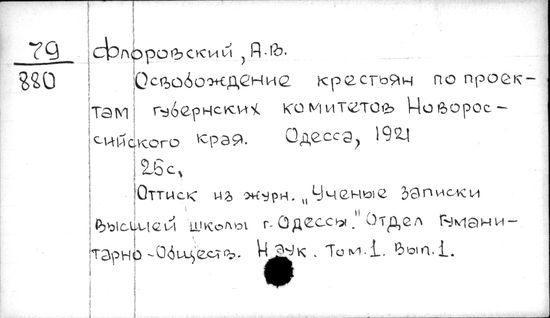 79 Флоровский, А.В.
880 Освобождение крестьян по проек-
там губернских комитетов Новорос-
сийского края. Одесса, 1921
25с,
Оттиск из журн. „Ученые записки
высшей школы г. Одессы." Отдел гумани-
тарно-обществ. Наук. Том.1. Вып.1.